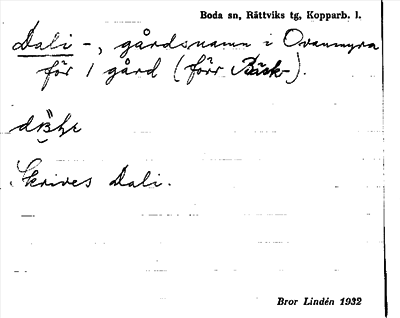 Boda sn, Rättviks tg, Kopparb. l.
Dali-, gårdsnamn i Ovanmyra
för 1 gård (förr Bäsk-).
Skrives Dali.
Bror Lindén 1932